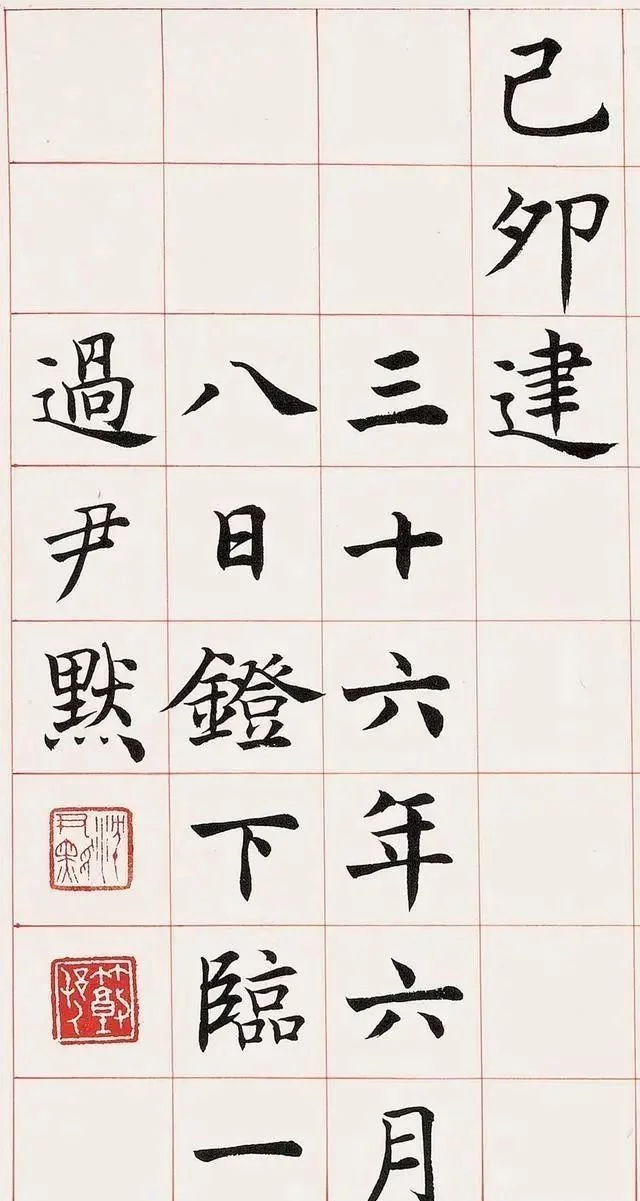 己卯建
三十六年六月
八日鐙下臨一
過尹默
沈尹默